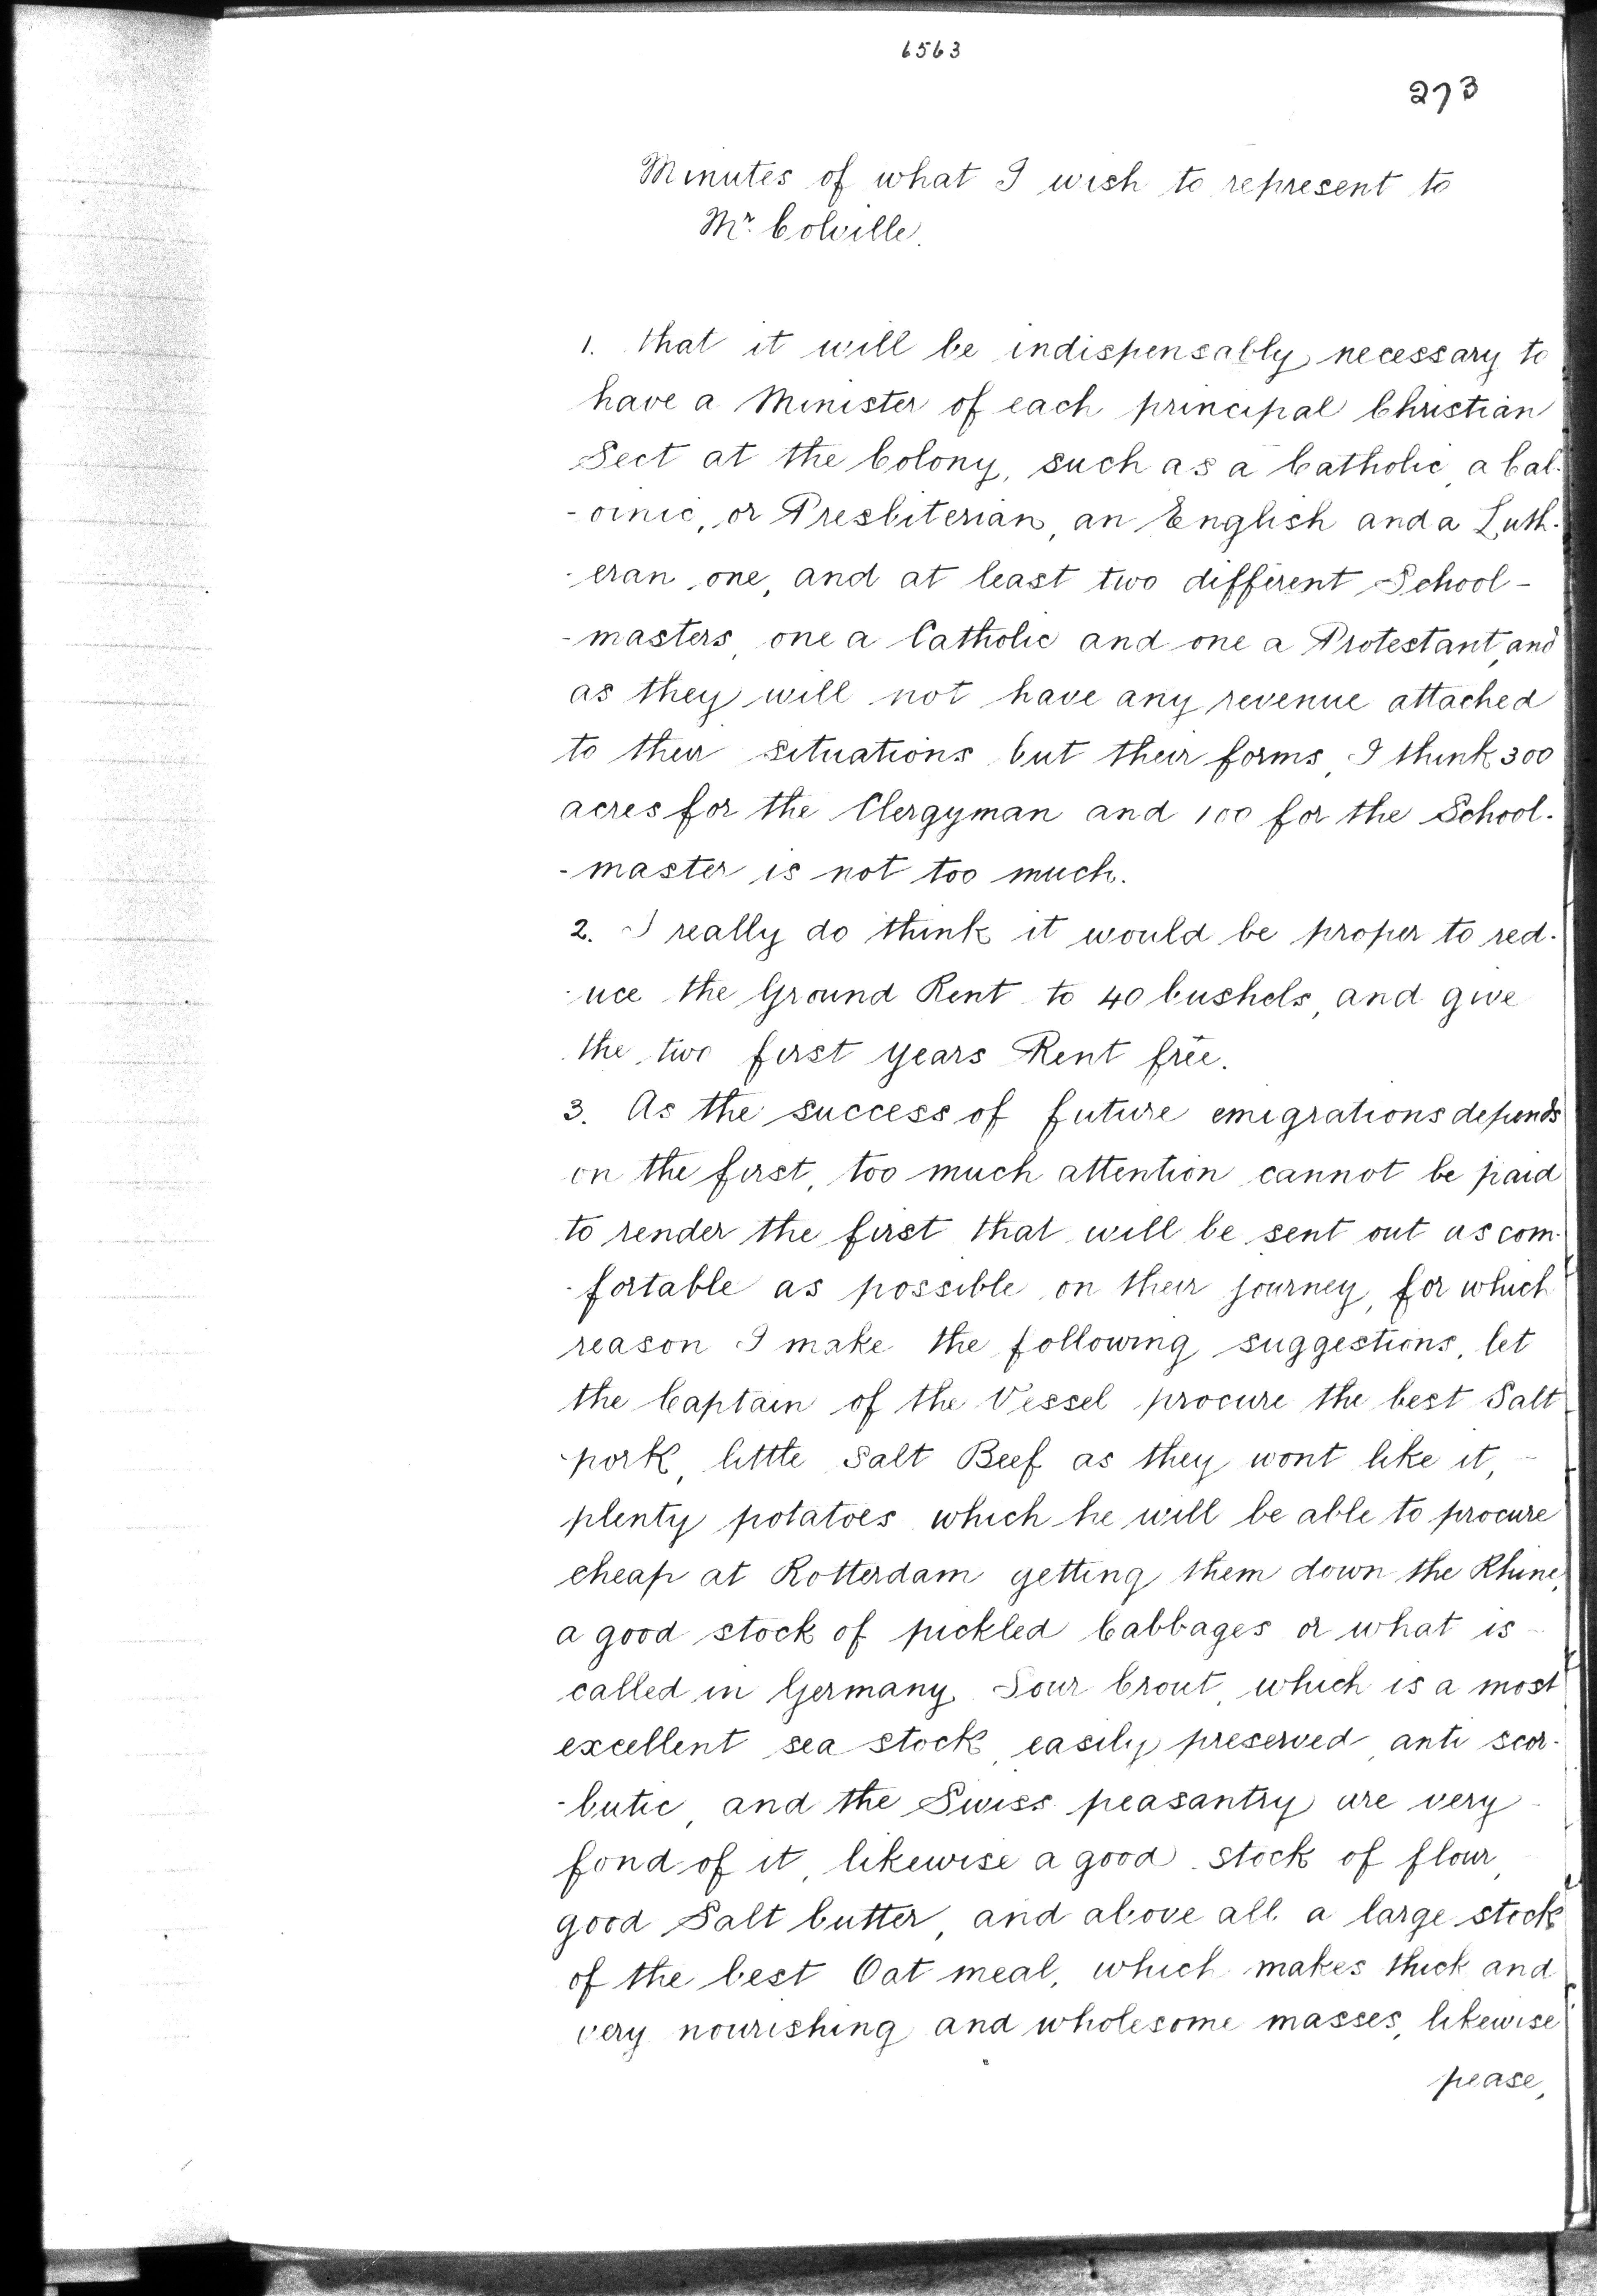 6563
273
Minutes of what I wish to represent to
Mr. Colville.
1. that it will be indispensably necessary to
have a Minister of each principal Christian
Sect at the Colony, such as a Catholic, a Cal-
-vinic, or Presbiterian, an English and a Luth-
-eran one, and at least two different School-
-masters, one a Catholic and one a Protestant, and
as they will not have any revenue attached
to their situations but their forms, I think 300
acres for the Clergyman and 100 for the School-
-master is not too much.
2. I really do think it would be proper to red-
-uce the Ground Rent to 40 bushels, and give
the two first years Rent free.
3. As the success of future emigrations depends
on the first, too much attention cannot be paid
to render the first that will be sent out as com-
-fortable as possible on their journey, for which
reason I make the following suggestions, let
the Captain of the Vessel procure the best Salt
pork, little Salt Beef as they wont like it,
plenty potatoes which he will be able to procure
cheap at Rotterdam getting them down the Rhine,
a good stock of pickled Cabbages or what is
called in Germany Sour Crout, which is a most
excellent sea stock, easily preserved, anti scor-
-butic, and the Swiss peasantry are very
fond of it, likewise a good stock of flour,
good Salt butter, and above all a large stock
of the best Oat meal, which makes thick and
very nourishing and wholesome masses, likewise
pease,